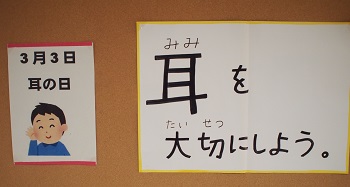 3月3日
耳の日
みみ
耳を
たい せつ
大切にしよう。